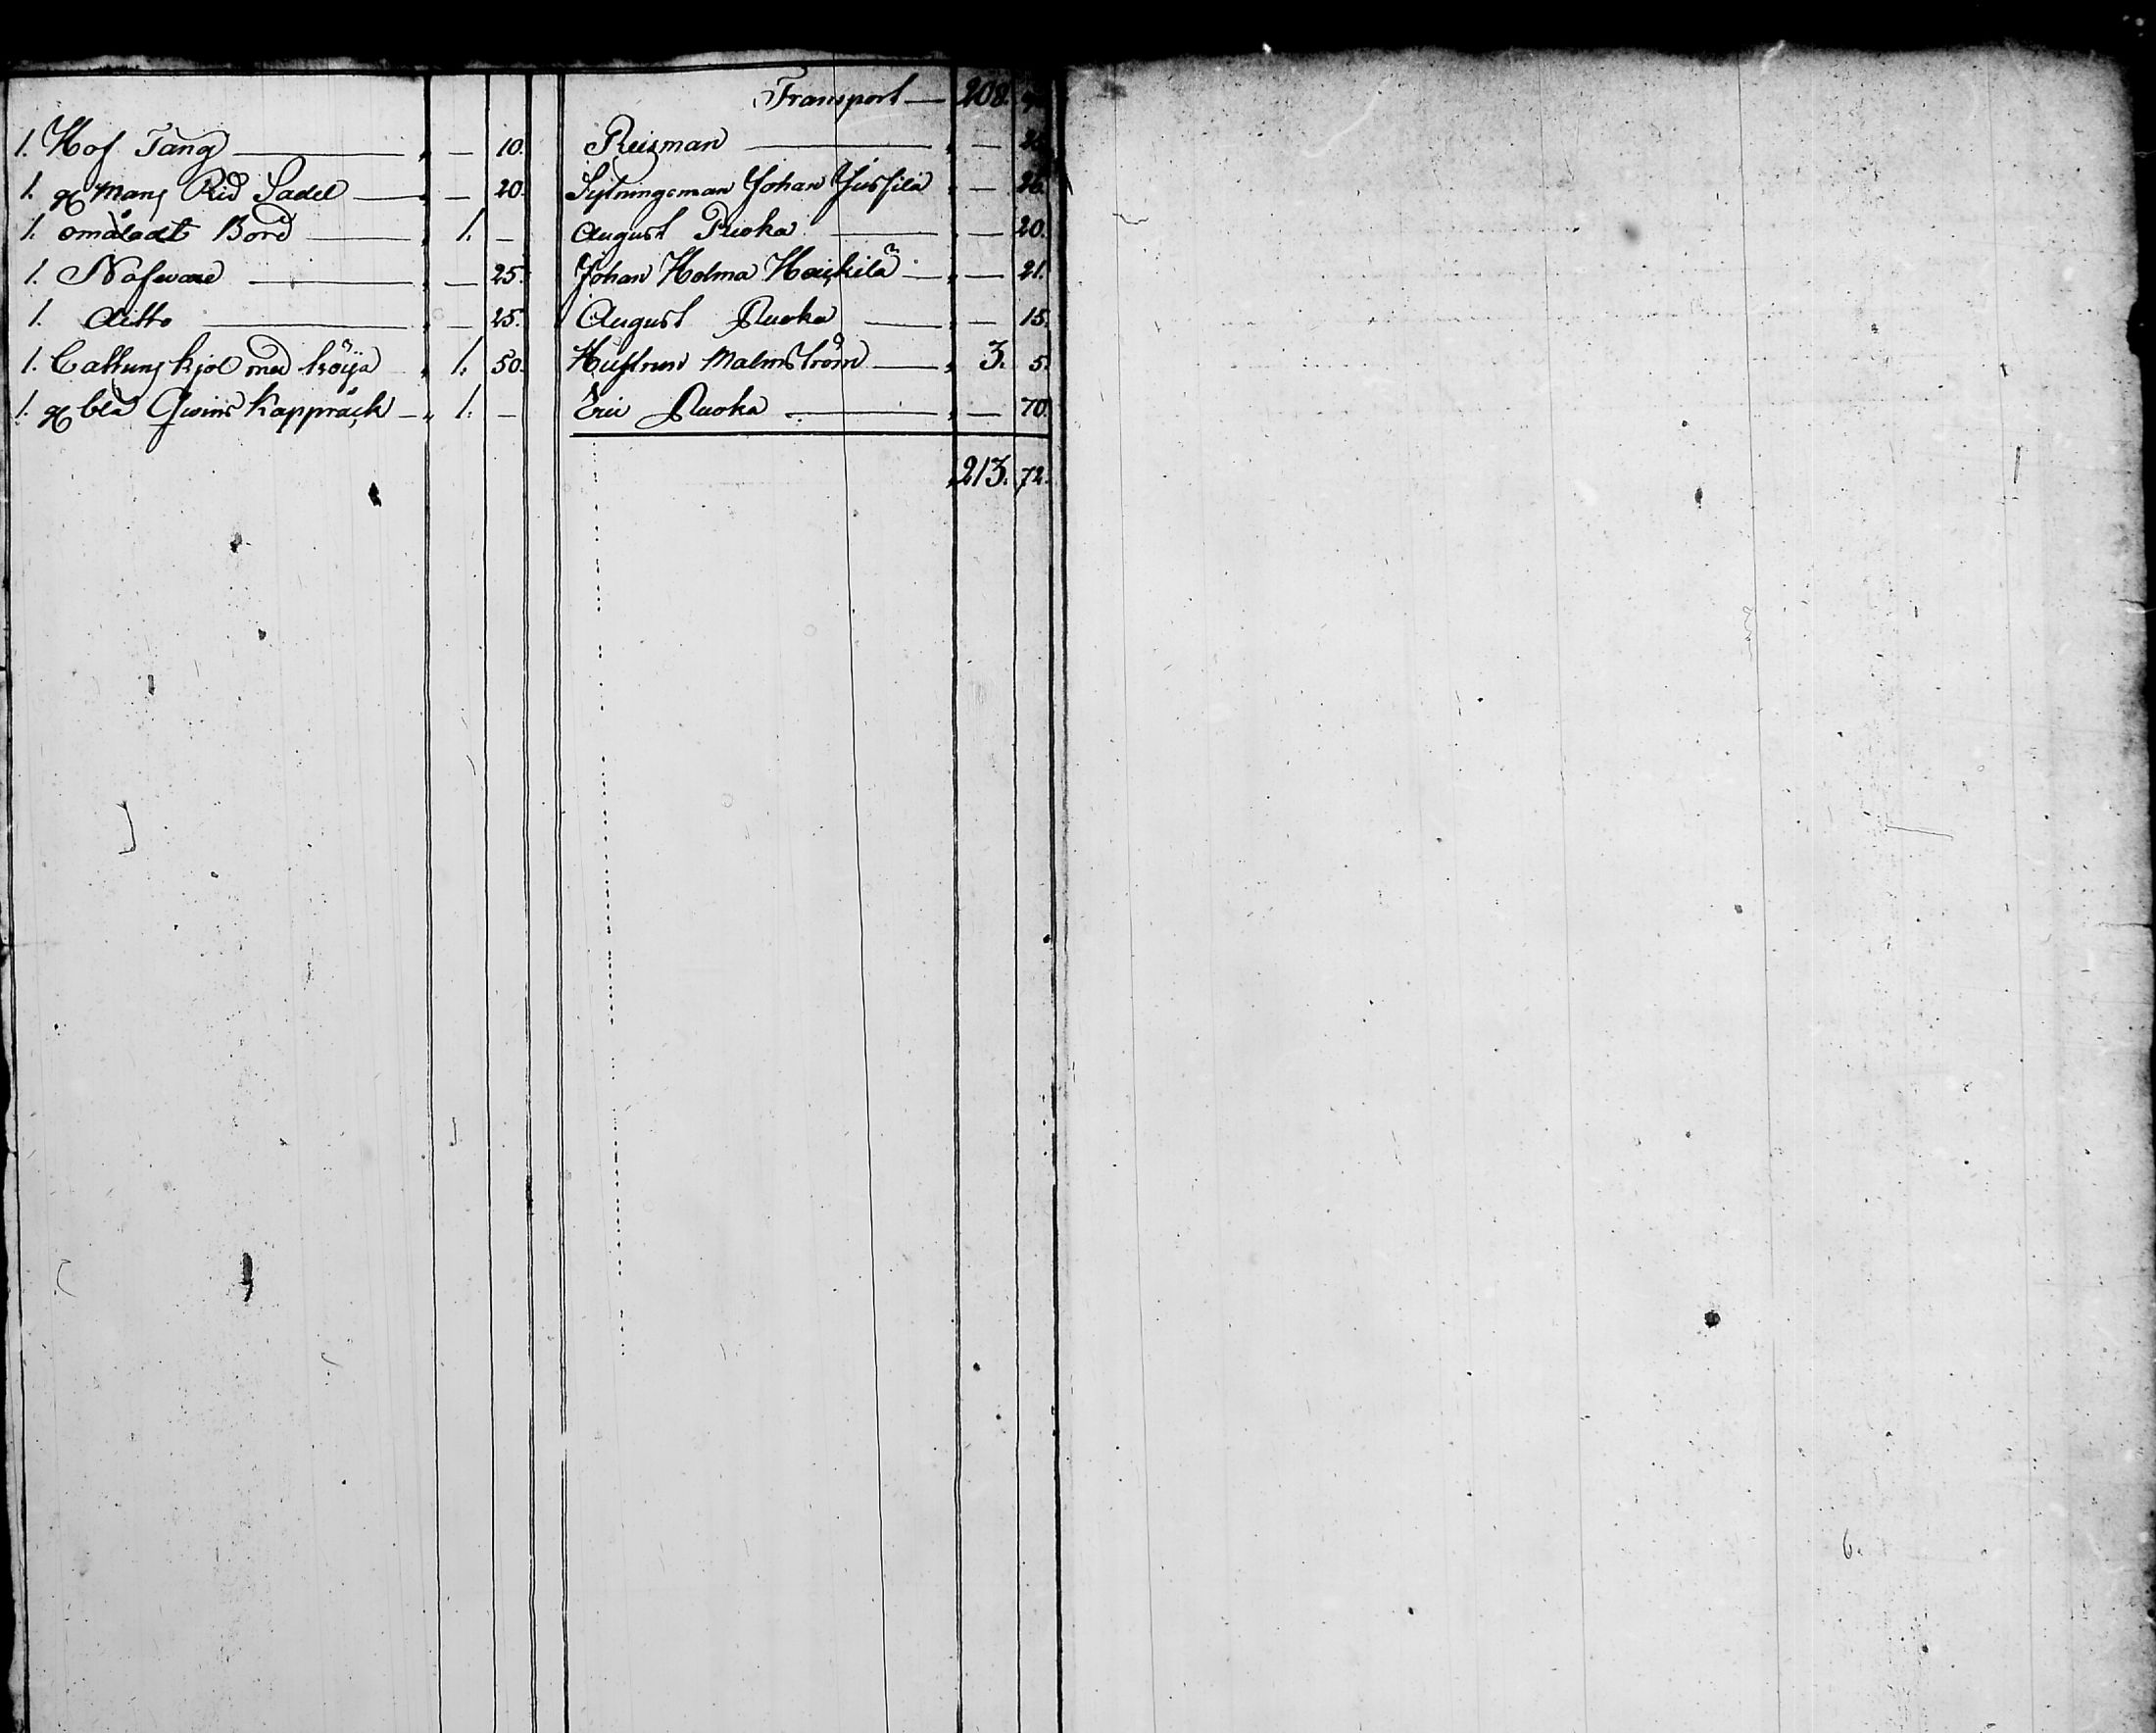 Transport — 208.
1. Hof Tång — „ — 10. Reisman — „ —
1. g mans Rid Sadel — „ — 20. Sytningsman Johan Jussila „ — 26.
1. omåladt Bord — „ 1. — August Ruoka — „ — 20.
1. Nafware — „ — 25. Johan Holma Heickilä — „ — 21.
1. ditto — „ — 25. August Ruoka — „ — 15.
1. Cattuns kjol med tröija „ 1. 50. Hustrun Malmström — „ 3. 5.
1. g blå Qwins Kappräck — „ 1. — Eric Ruoka — „ — 70.
213. 72.
6.